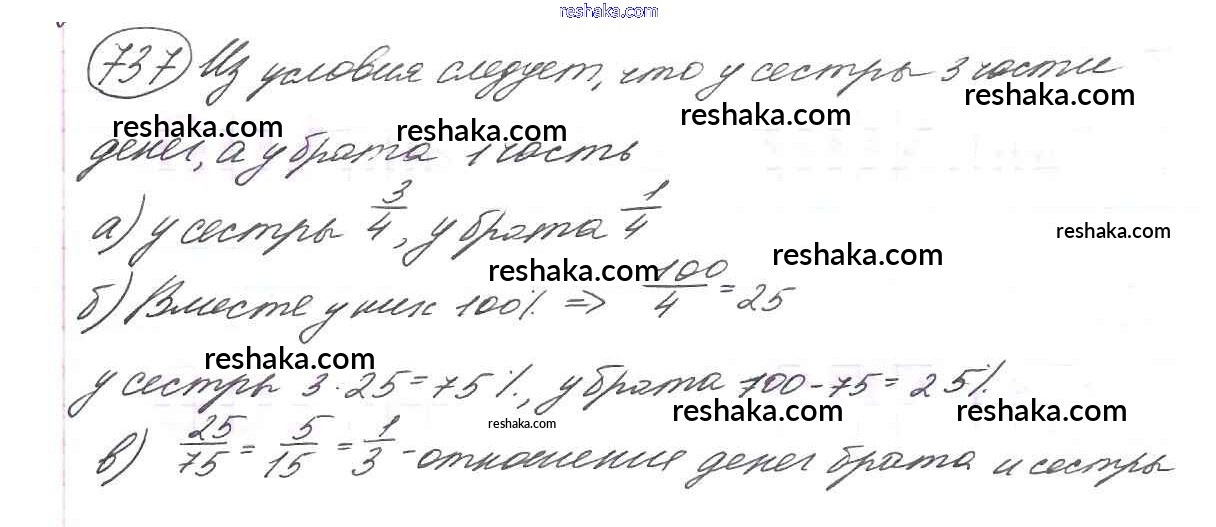 reshaka.com
737 Из условия следует, что у сестры 3 части
reshaka.com reshaka.com reshaka.com reshaka.com
денег, а у брата 1 часть
а) у сестры 3/4, у брата 1/4
reshaka.com
reshaka.com reshaka.com
б) Вместе у них 100% => 100/4 = 25
reshaka.com
у сестры 3·25=75%, у брата 100-75=25%.
reshaka.com reshaka.com reshaka.com
в) 25/75 = 5/15 = 1/3 - отношения денег брата и сестры